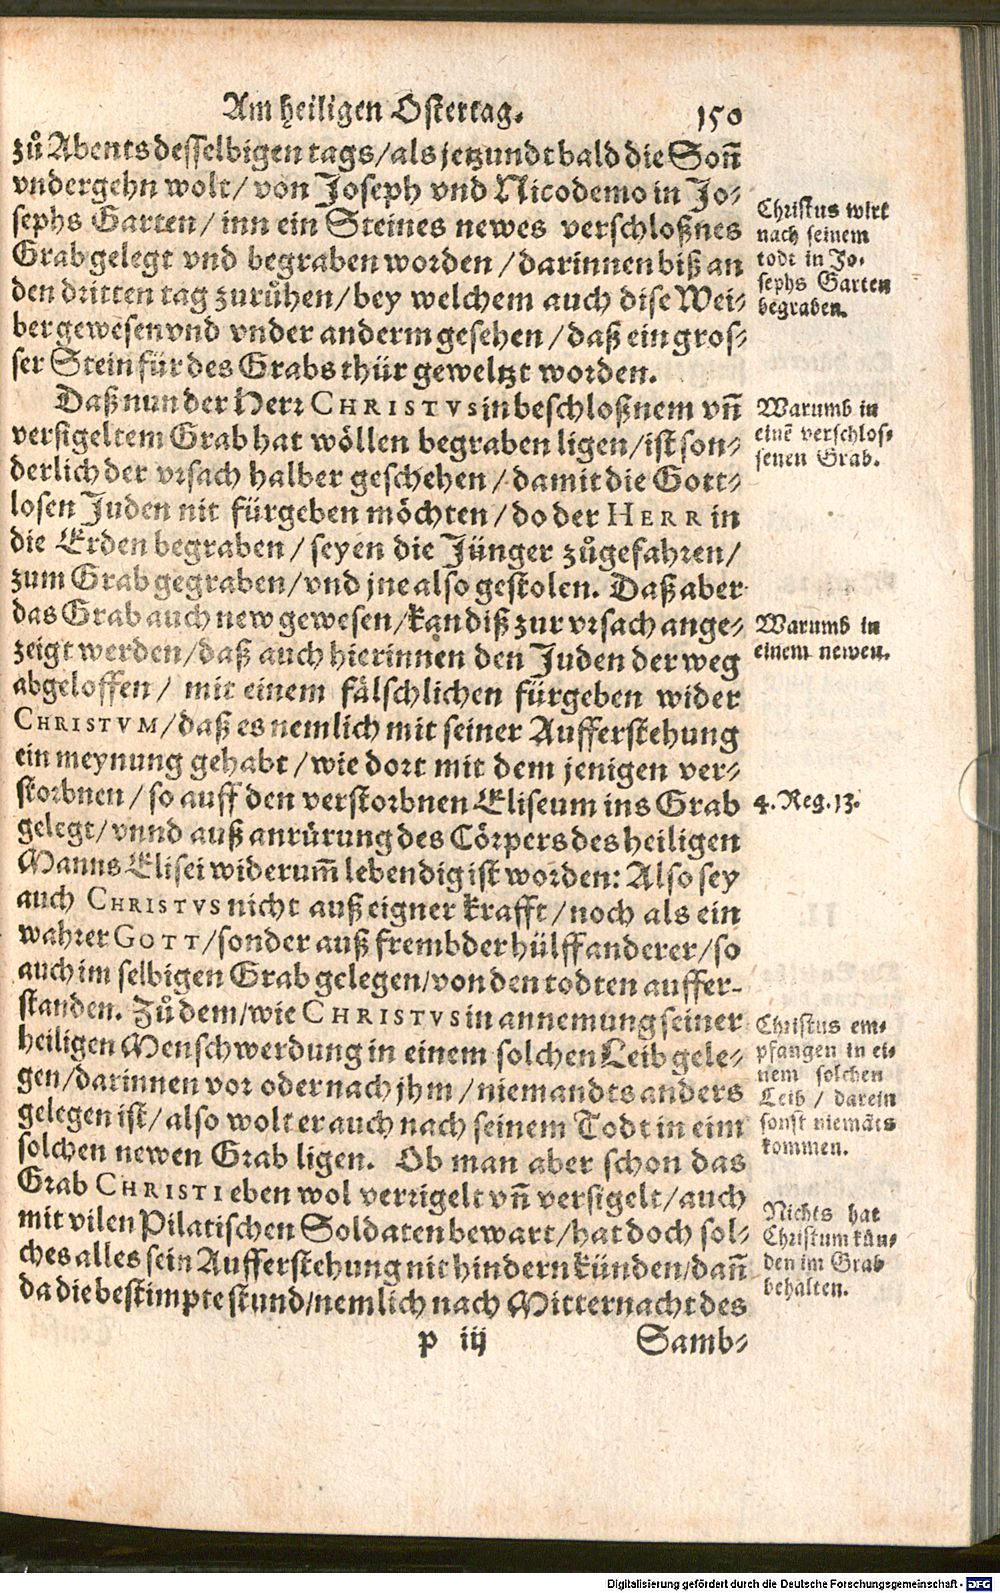 Am heiligen Ostertag. 150
zů Abents desselbigen tags/als jetzundt bald die Soñ
vndergehn wolt/ von Joseph vnd Nicodemo in Jo-
sephs Garten/ inn ein Steines newes verschloßnes
Grab gelegt vnd begraben worden/darinnen biß an
den dritten tag zurůhen/bey welchem auch dise Wei-
ber gewesen vnd vnder anderm gesehen/daß ein gros-
ser Stein für des Grabs thür geweltzt worden.
Daß nun der Herr CHRISTVS in beschloßnem vñ
versigeltem Grab hat wöllen begraben ligen/ist son-
derlich der vrsach halber geschehen/damit die Gott-
losen Juden nit fürgeben möchten/do der HERR in
die Erden begraben/seyen die Jünger zůgefahren/
zum Grab gegraben/vnd jne also gestolen. Daß aber
das Grab auch new gewesen/kan diß zur vrsach ange-
zeigt werden/daß auch hierinnen den Juden der weg
abgeloffen/ mit einem fälschlichen fürgeben wider
CHRISTVM/daß es nemlich mit seiner Aufferstehung
ein meynung gehabt/wie dort mit dem jenigen ver-
storbnen/so auff den verstorbnen Eliseum ins Grab
gelegt/vnnd auß anrürung des Cörpers des heiligen
Manns Elisei widerum̃ lebendig ist worden: Also sey
auch CHRISTVS nicht auß eigner krafft/noch als ein
wahrer GOTT/sonder auß frembder hülff anderer/so
auch im selbigen Grab gelegen/von den todten auffer-
standen. Zů dem/wie CHRISTVS in annemung seiner
heiligen Menschwerdung in einem solchen Leib gele-
gen/darinnen vor oder nach jhm/niemandts anders
gelegen ist/also wolt er auch nach seinem Todt in eim
solchen newen Grab ligen. Ob man aber schon das
Grab CHRISTI eben wol verrigelt vñ versigelt/auch
mit vilen Pilatischen Soldaten bewart/hat doch sol-
ches alles sein Aufferstehung nit hindern künden/dañ
da die bestimpte stund/nemlich nach Mitternacht des
p iij Samb-
Christus wirt
nach seinem
todt in Jo-
sephs Garten
begraben.
Warumb in
einẽ verschlos-
senen Grab.
Warumb in
einem newen.
4. Reg. 13.
Christus em-
pfangen in ei-
nem solchen
Leib / darein
sonst niemãts
kommen.
Nichts hat
Christum kün-
den im Grab
behalten.
Digitalisierung gefördert durch die Deutsche Forschungsgemeinschaft - DFG